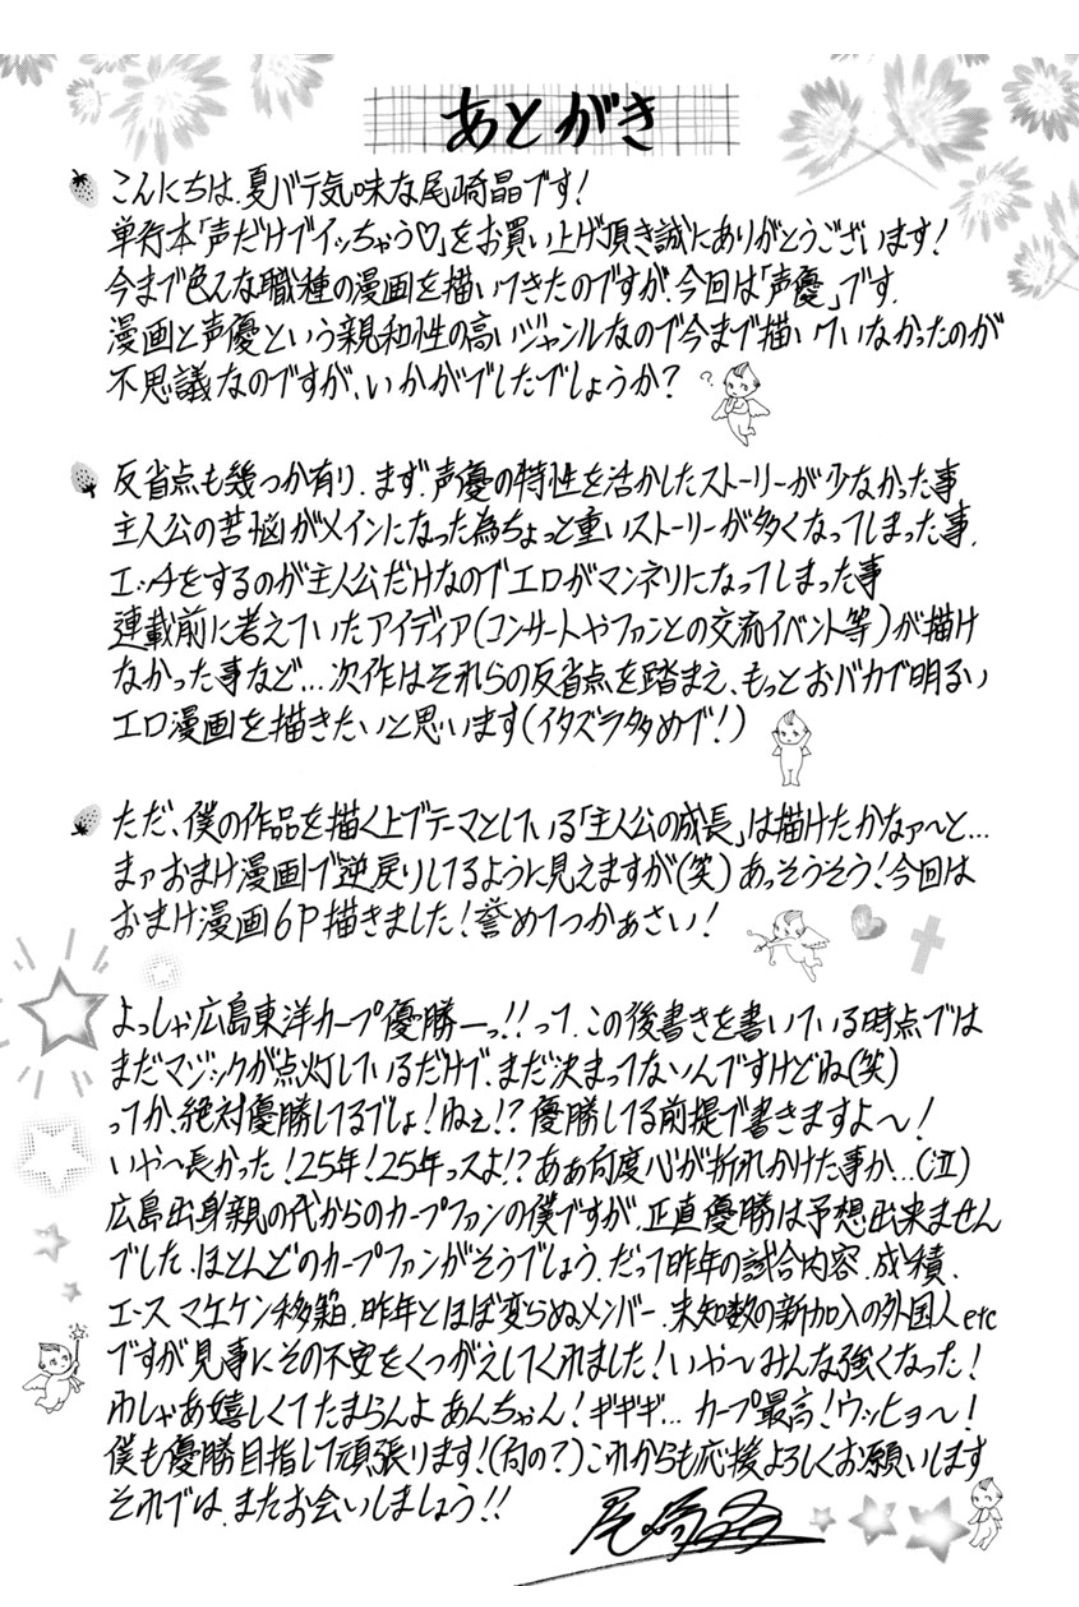 あとがき
こんにちは、夏バテ気味な尾崎晶です!
単行本「声だけでイッちゃう♡」をお買い上げ頂き誠にありがとうございます!
今まで色んな職種の漫画を描いてきたのですが、今回は「声優」です。
漫画と声優という親和性の高いジャンルなので今まで描いていなかったのが
不思議なのですが、いかがでしたでしょうか?
?
反省点も幾つか有り、まず、声優の特性を活かしたストーリーが少なかった事、
主人公の苦悩がメインになった為ちょっと重いストーリーが多くなってしまった事、
エッチをするのが主人公だけなのでエロがマンネリになってしまった事
連載前に考えていたアイディア(コンサートやファンとの交流イベント等)が描け
なかった事など…次作はそれらの反省点を踏まえ、もっとおバカで明るい
エロ漫画を描きたいと思います(イタズラ多めで!)
ただ、僕の作品を描く上でテーマとしている「主人公の成長」は描けたかなァ〜と…
まァおまけ漫画で逆戻りしてるように見えますが(笑)あっそうそう!今回は
おまけ漫画6P描きました!誉めてつかぁさい!
よっしゃ広島東洋カープ優勝ーっ!!って、この後書きを書いている時点では
まだマジックが点灯しているだけで、まだ決まってないんですけどね(笑)
ってか、絶対優勝してるでしょ!ねぇ!?優勝してる前提で書きますよ〜!
いや〜長かった!25年!25年っスよ!?あぁ何度心が折れかけた事か…(泣)
広島出身親の代からのカープファンの僕ですが、正直優勝は予想出来ません
でした、ほとんどのカープファンがそうでしょう、だって昨年の試合内容、成績、
エース マエケン移籍、昨年とほぼ変らぬメンバー、未知数の新加入の外国人etc
ですが見事にその不安をくつがえしてくれました!いや〜みんな強くなった!
わしゃあ嬉しくてたまらんよあんちゃん!ギギギ…カープ最高!ウッヒョ〜!
僕も優勝目指して頑張ります!(何の?)これからも応援よろしくお願いします
それでは、またお会いしましょう!!
尾崎晶